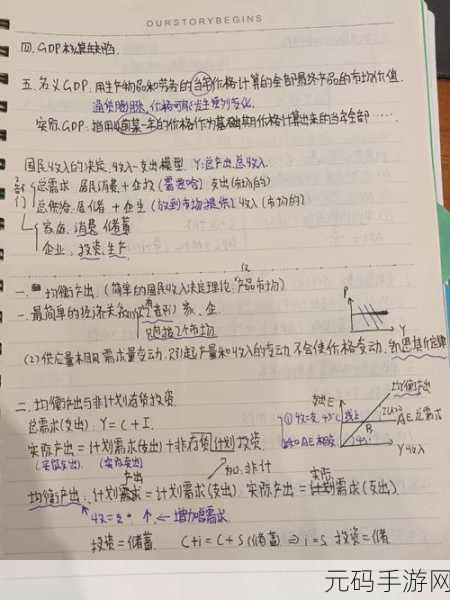 OURSTORYBEGINS
四. GDP核算缺陷.
五. 名义GDP. 用生产物品和劳务的当年价格计算的全部最终产品的市场价值.
通货膨胀, 价格可能发生变化
实际GDP: 指用从前某一年的价格作为基础期价格计算出来的当年全部……
国民收入的决定. 收入-支出模型. Y: 总产出, 总收入.
总需求 居民消费 + 企投 支出(市场的)
总供给. 居储 + 企生 (放到市场提供) 收入(市场的)
家庭. 消费. 储蓄
企业. 投资. 生产.
一. 均衡产出. (简单的国民收入决定理论. 产品市场)
一. 最简单的经济关系 家、企.
只包括2个市场
P
Y
(2) 供应量本用需求量变动, 只引起产量和收入的变动, 不会使价格变动.
二. 均衡产出与非计划存货投资.
总需求(支出): Y = C + I.
实际产出 = 计划需求(支出) + 非存货计划投资.
产出
加: 非计
支出E
均衡产出
AE 总需求
B
45°
Y
均衡产出: 计划需求 = 计划需求(支出). 实际产出 = 计划需求(支出).
实际
增加总需求
投资 = 储蓄. C+i = C+S (储蓄) ⇒ i=s 投资=储
元码手游网